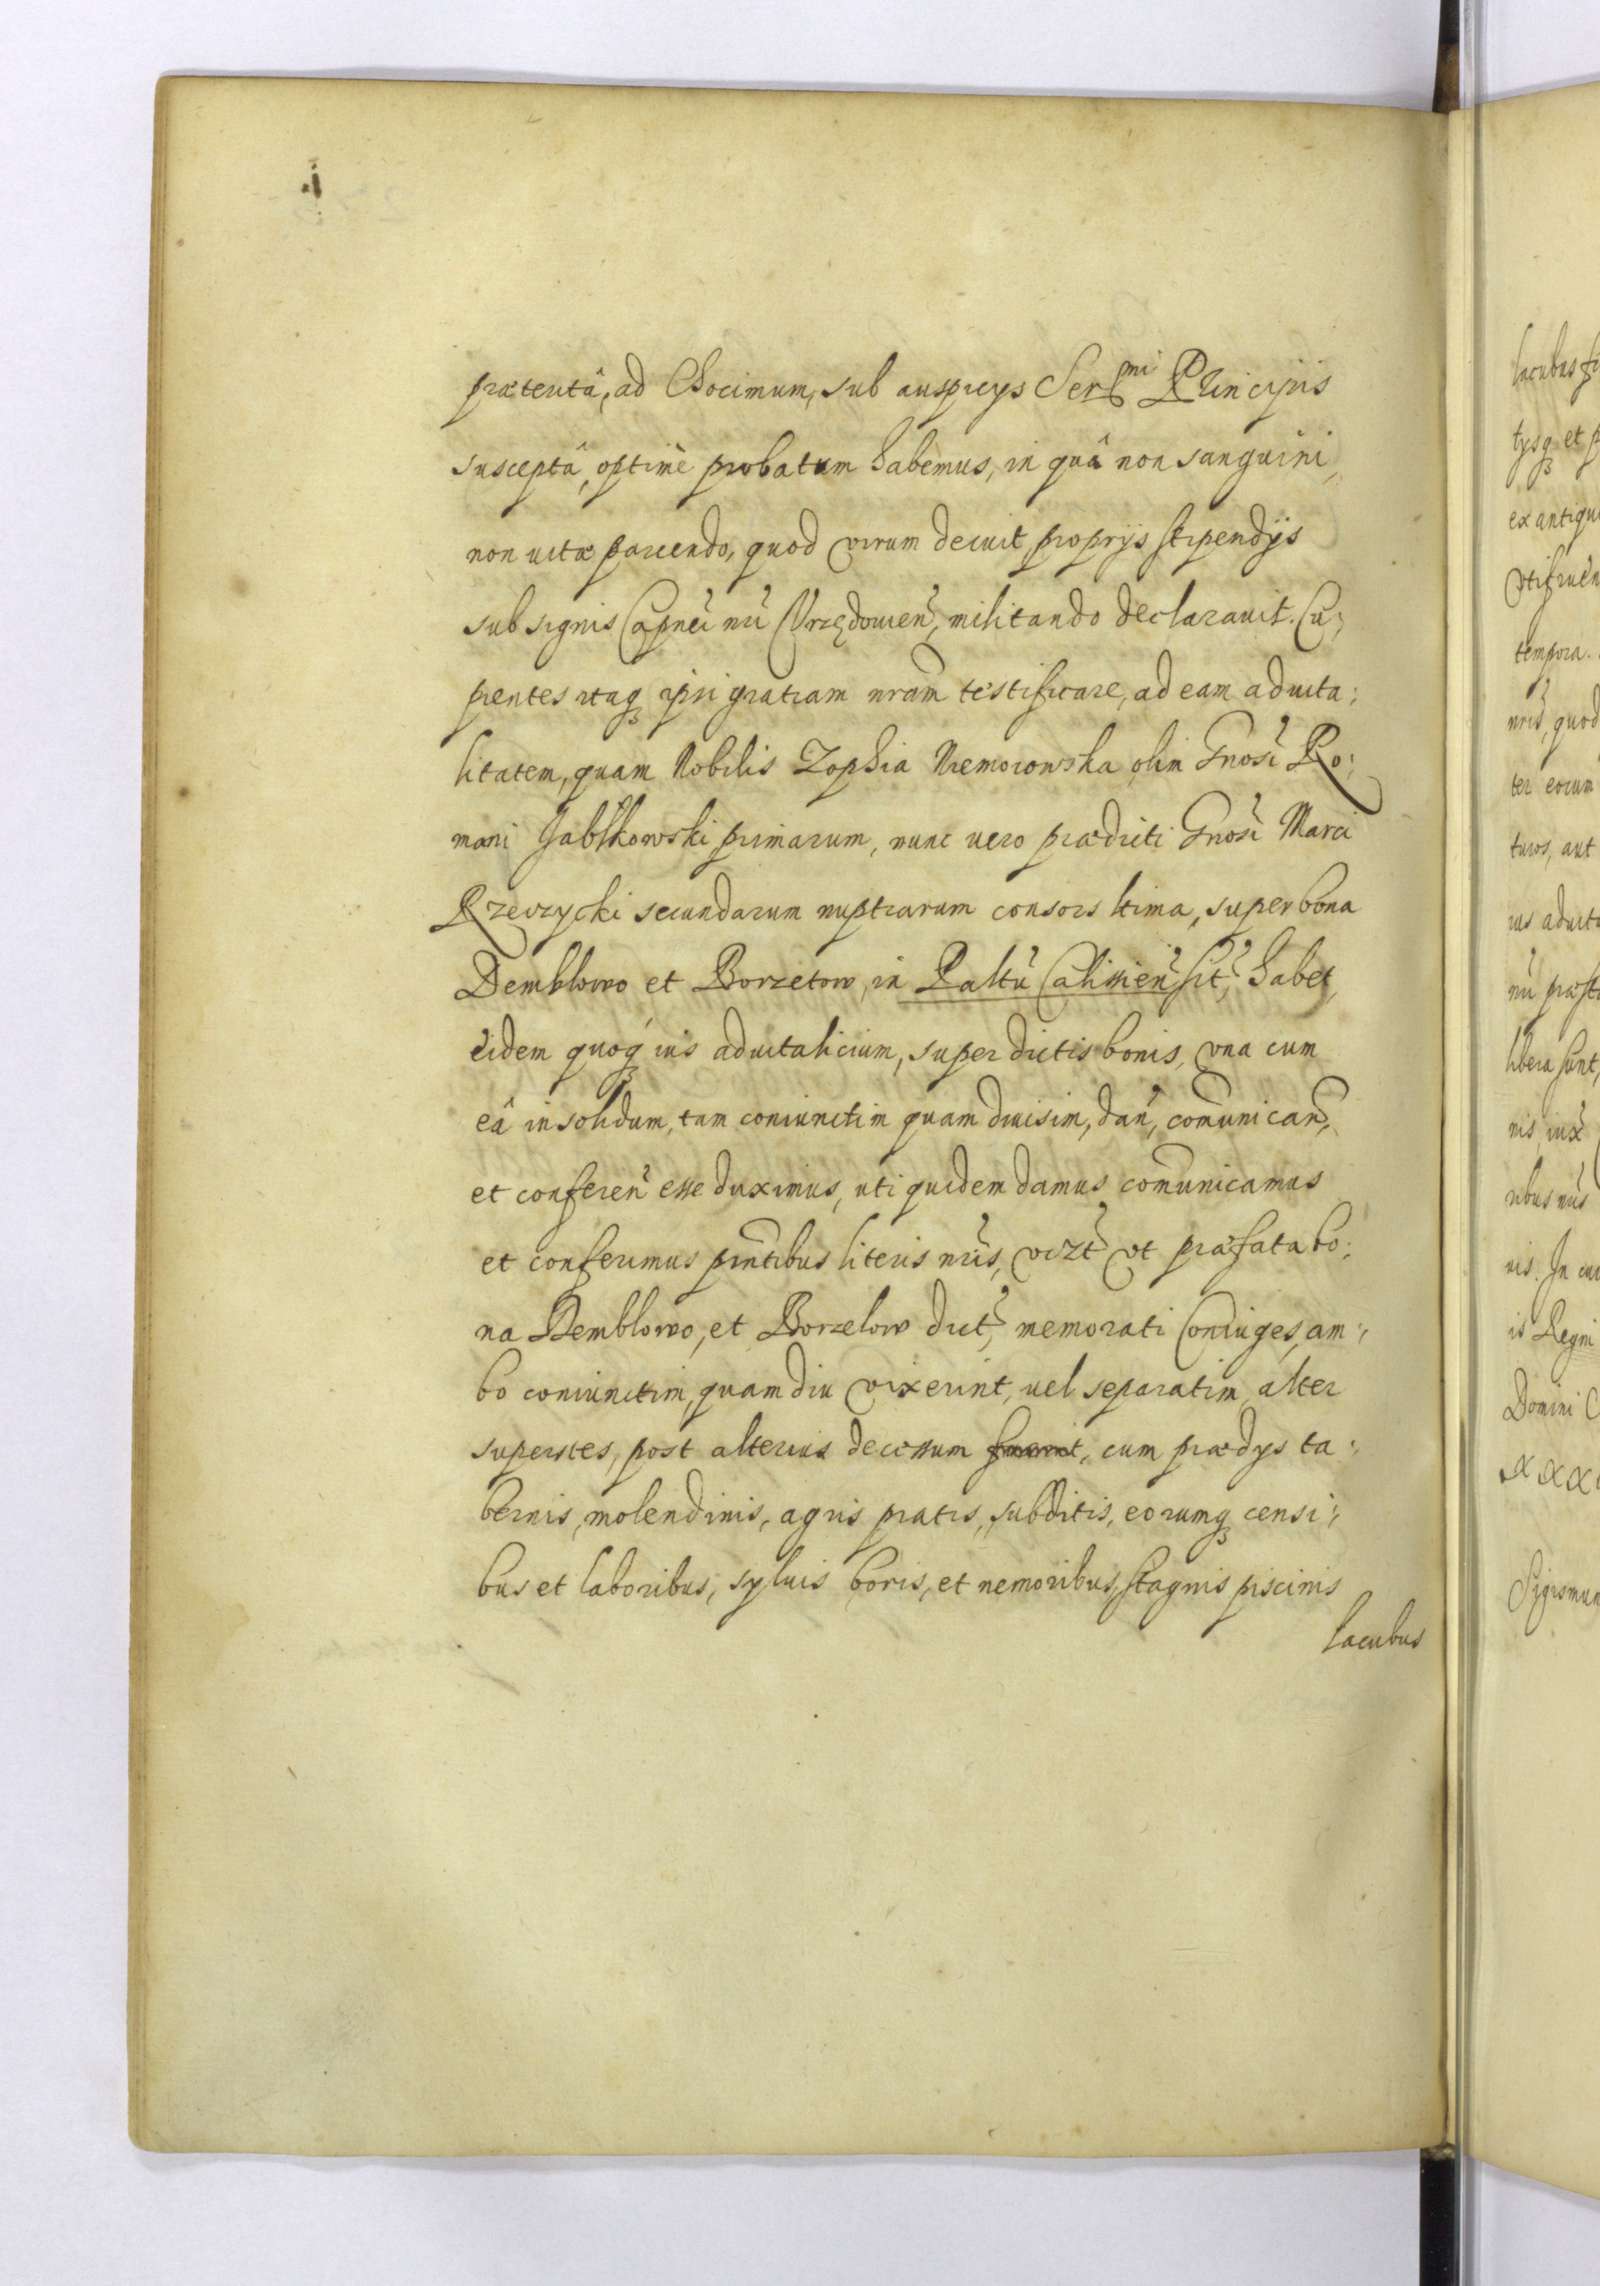 prætentâ, ad Chocimum, sub auspicys Ser^mi Principis
susceptâ, optimè probatum habemus, in quâ non sanguini,
non uitæ parcendo, quod virum decuit proprijs stipendijs
sub signis Capnei nri Vrzędouien, militando declarauit. Cu:
pientes itaq ipsi gratiam nram testificare, ad eam aduita:
litatem, quam Nobilis Zophia Niemoiowska olim Gnosi Ro:
mani Jabłkowski primarum, nunc uero prædicti Gnosi Marci
Rzeczycki secundarum nuptiarum consors ltima, super bona
Demblowo et Borzetow, in Paltu Calissien sit, habet,
eidem quoq ius aduitalicium, super dictis bonis, vna cum
eâ in solidum, tam coniunctim quam diuisim, dan, comunican,
et conferen esse duximus, uti quidem damus comunicamus
et conferimus pntibus literis nris, vizt vt præfata bo:
na Demblowo, et Borzelow dict, memorati Coniuges, am:
bo coniunctim, quam diu vixerint, uel separatim alter
superstes, post alterius decessum fuerit, cum prædys ta:
bernis, molendinis, agris pratis, subditis, eorumq censi:
bus et laboribus, syluis boris, et nemoribus, stagnis piscinis
lacubus
lacubus
tysq et
ex antiqu
tempora.
nris, quod
ter eorum
turos, aut
ius aduit
libera sunt,
ribus nris
nis. In cui
is Regni
Domini C
Sigismun